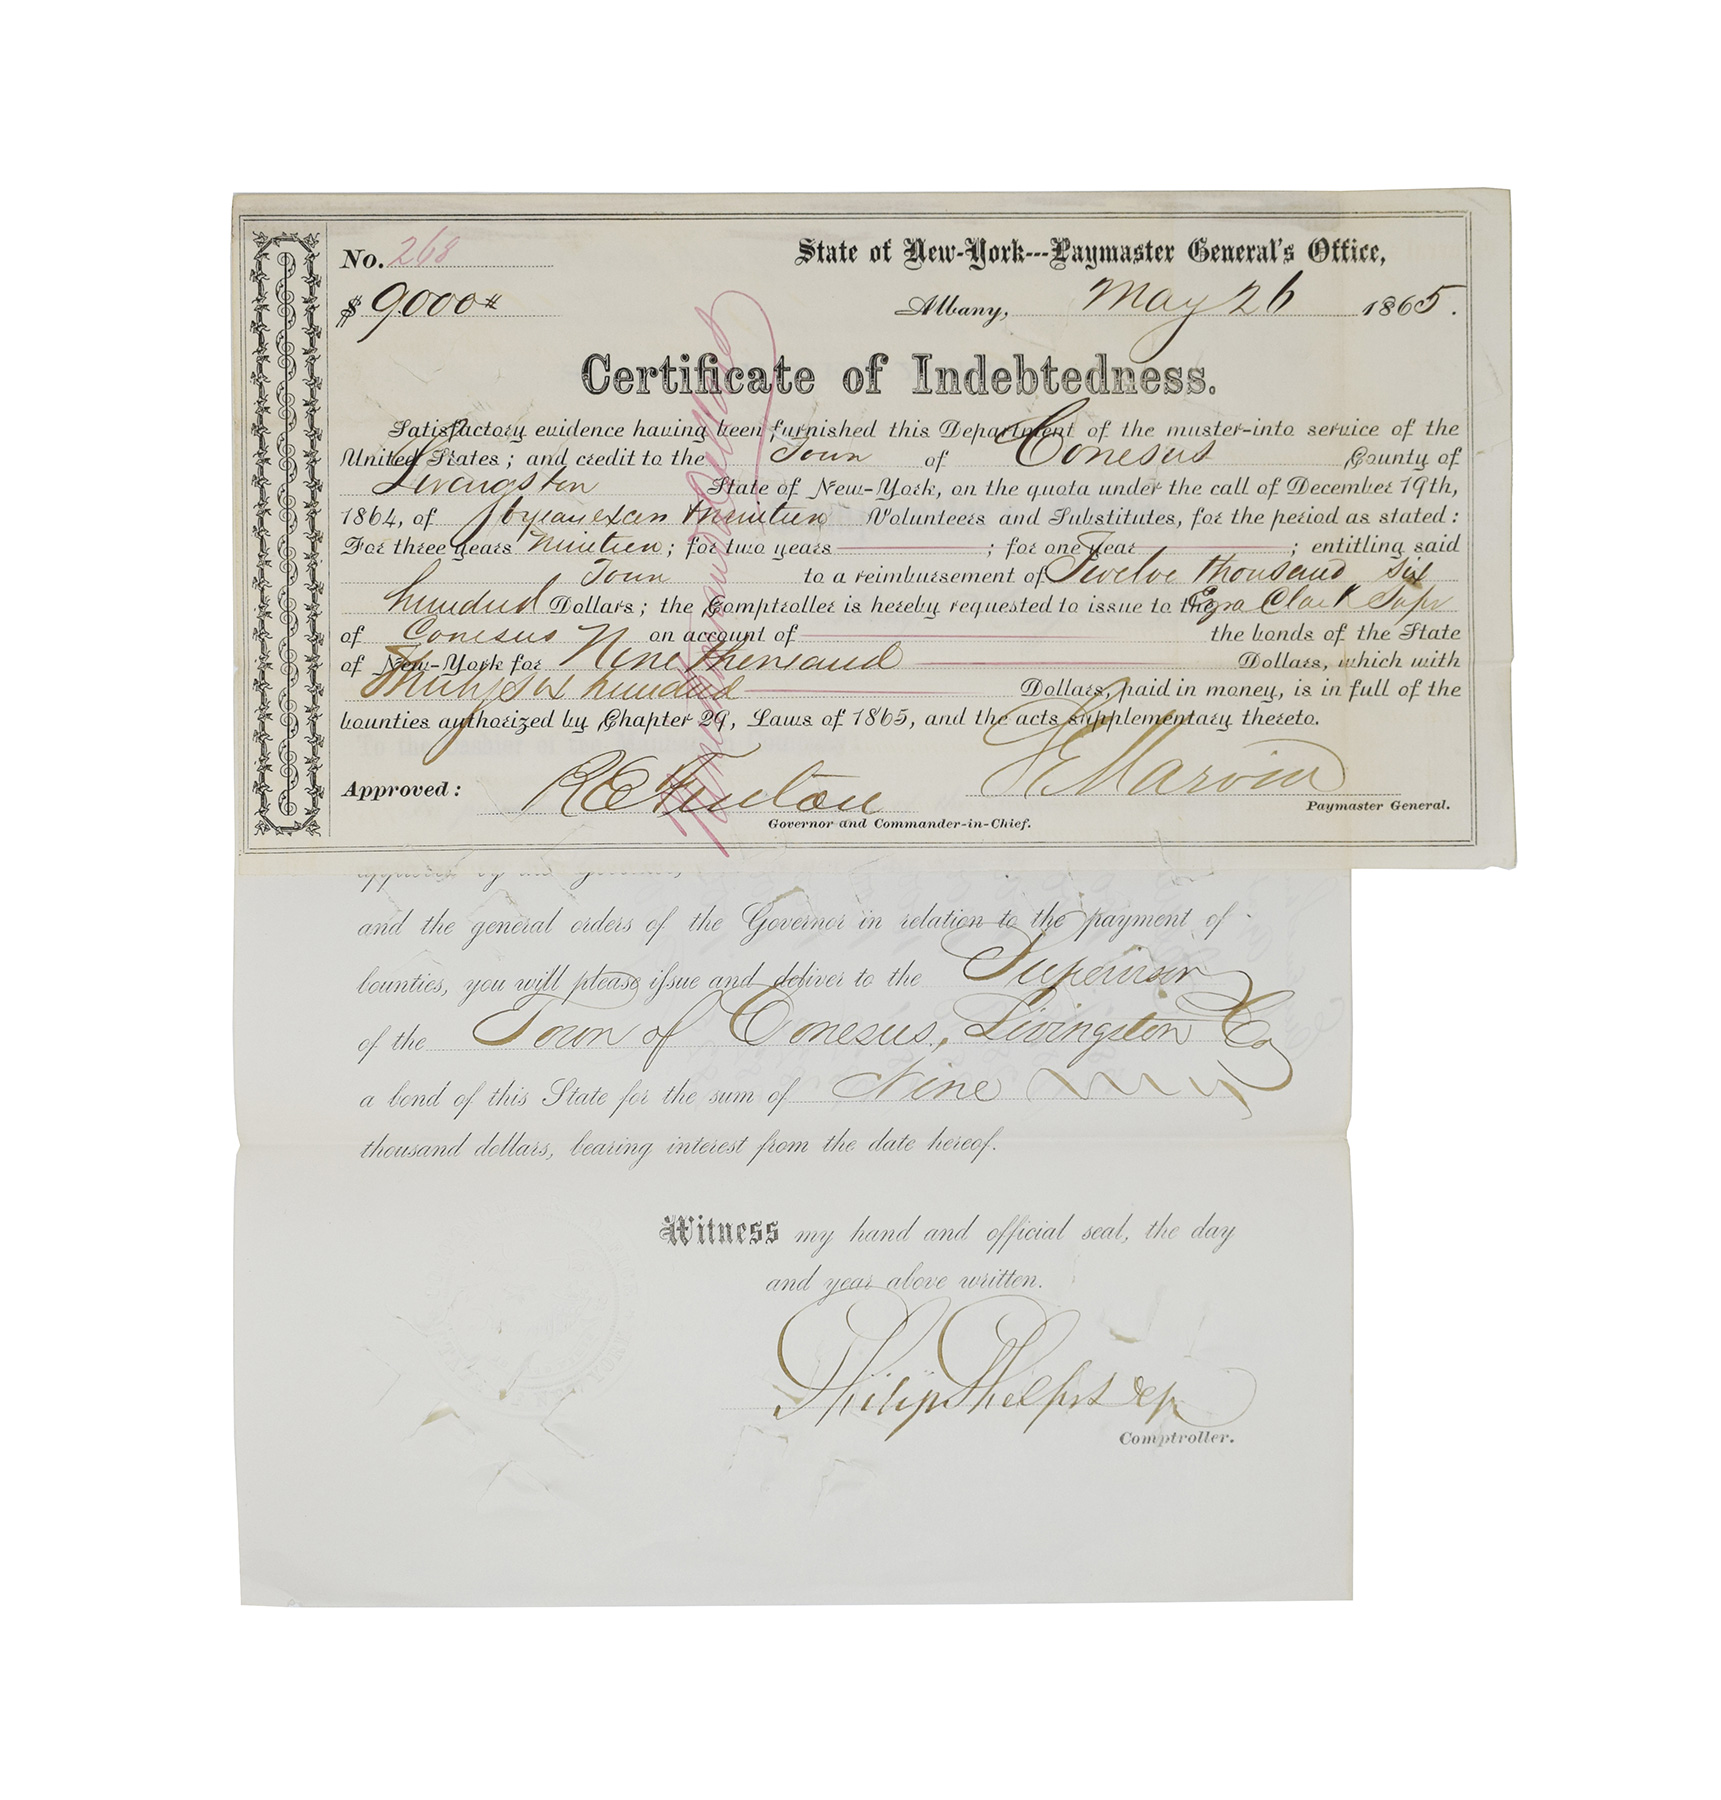 No. 268
State of New-York---Paymaster General's Office,
$ 9000
Albany, May 26 1865.
Certificate of Indebtedness.
Satisfactory evidence having been furnished this Department of the muster-into service of the
United States; and credit to the Town of Conesus County of
Livingston State of New-York, on the quota under the call of December 19th,
1864, of Nineteen Volunteers and Substitutes, for the period as stated:
For three years Nineteen; for two years ; for one year ; entitling said
Town to a reimbursement of Twelve thousand six
hundred Dollars; the Comptroller is hereby requested to issue to the Ezra Clark Supr
of Conesus on account of the bonds of the State
of New-York for Nine thousand Dollars, which with
Thirty six hundred Dollars, paid in money, is in full of the
bounties authorized by Chapter 29, Laws of 1865, and the acts supplementary thereto.
Approved: R E Fenton
Governor and Commander-in-Chief.
Marvin
Paymaster General.
approved by the Governor,
and the general orders of the Governor in relation to the payment of
bounties, you will please issue and deliver to the Supervisor
of the Town of Conesus, Livingston Co
a bond of this State for the sum of Nine
thousand dollars, bearing interest from the date hereof.
Witness my hand and official seal, the day
and year above written.
Philip Phelps Dep
Comptroller.